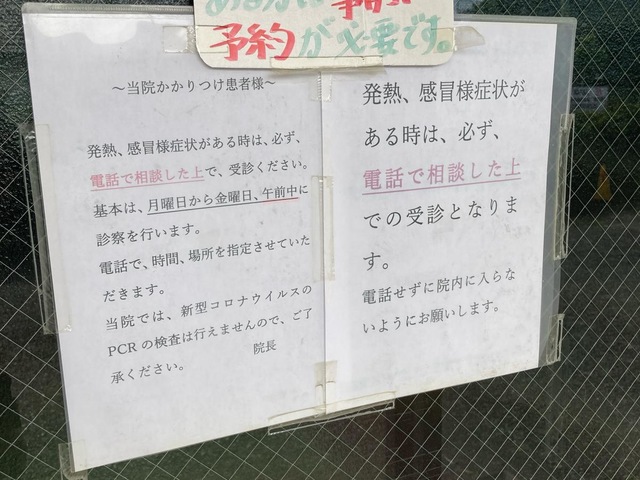 予約が必要です。
～当院かかりつけ患者様～
発熱、感冒様症状がある時は、必ず、
電話で相談した上で、受診ください。
基本は、月曜日から金曜日、午前中に
診察を行います。
電話で、時間、場所を指定させていた
だきます。
当院では、新型コロナウイルスの
PCRの検査は行えませんので、ご了
承ください。
院長
発熱、感冒様症状が
ある時は、必ず、
電話で相談した上
での受診となりま
す。
電話せずに院内に入らな
いようにお願いします。